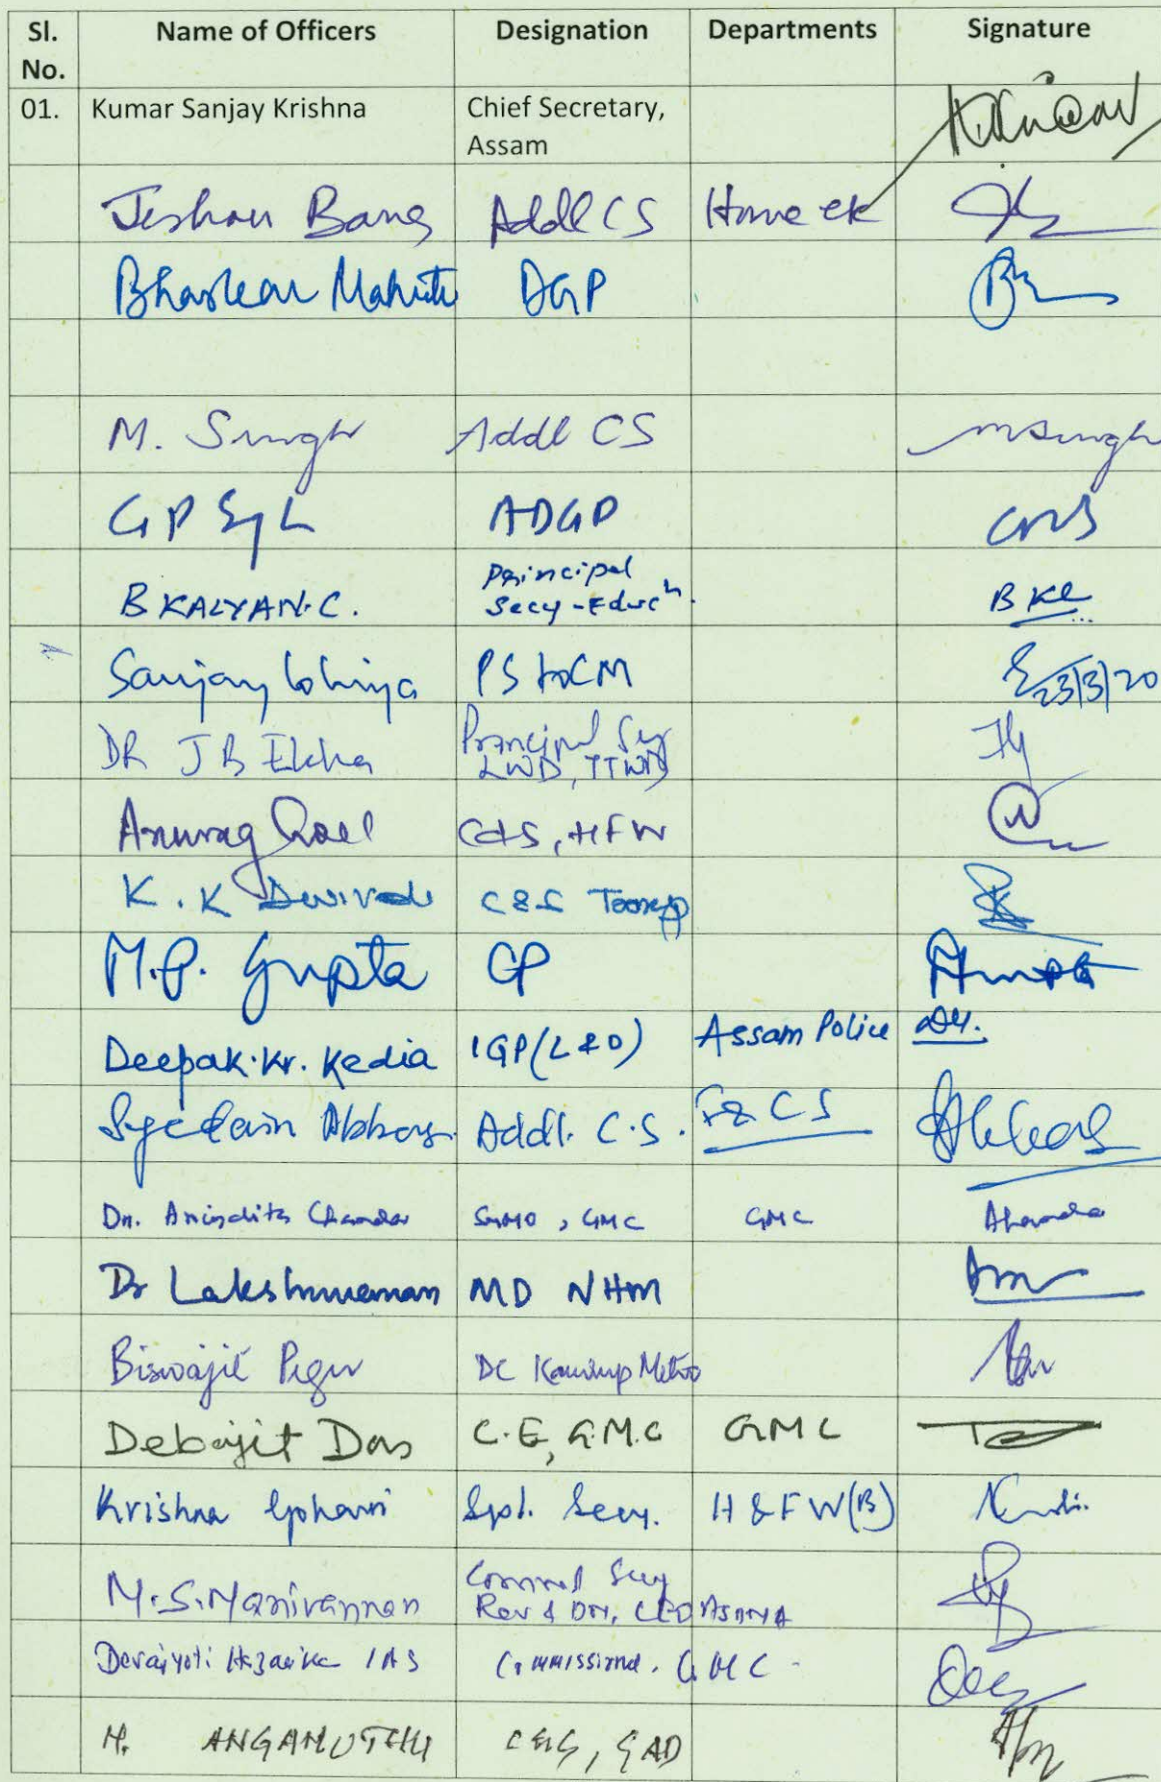 Sl. No. Name of Officers Designation Departments Signature
01. Kumar Sanjay Krishna Chief Secretary, Assam
Jishnu Barua Addl CS Home etc
Bhaskar Mahanta DGP
M. Singh Addl CS MSingh
GP Singh ADGP GPS
B KALYAN.C. Principal Secy-Educn. BKC
Sanjay Lohiya PS to CM 23/3/20
DR J B Ekka Principal Secy LWD, TTWD
Anurag Goel C&S, HFW
K. K Dwivedi C&S Transp
M.P. Gupta CP
Deepak Kr. Kedia IGP(L&O) Assam Police
Syedain Abbasi Addl. C.S. F&CS Abbasi
Dr. Anindita Chanda SMHO, GMC GMC AChanda
Dr Lakshmanan MD NHM
Biswajit Pegu DC Kamrup Metro
Debajit Das C.E, G.M.C GMC
Krishna Gohain Spl. Secy. H & F W(B)
M.S.Manivannan Commnr Secy Rev & DM, CEO ASDMA
Devajyoti Hazarika IAS Commissioner. GMC
M. ANGAMUTHU C&S, GAD